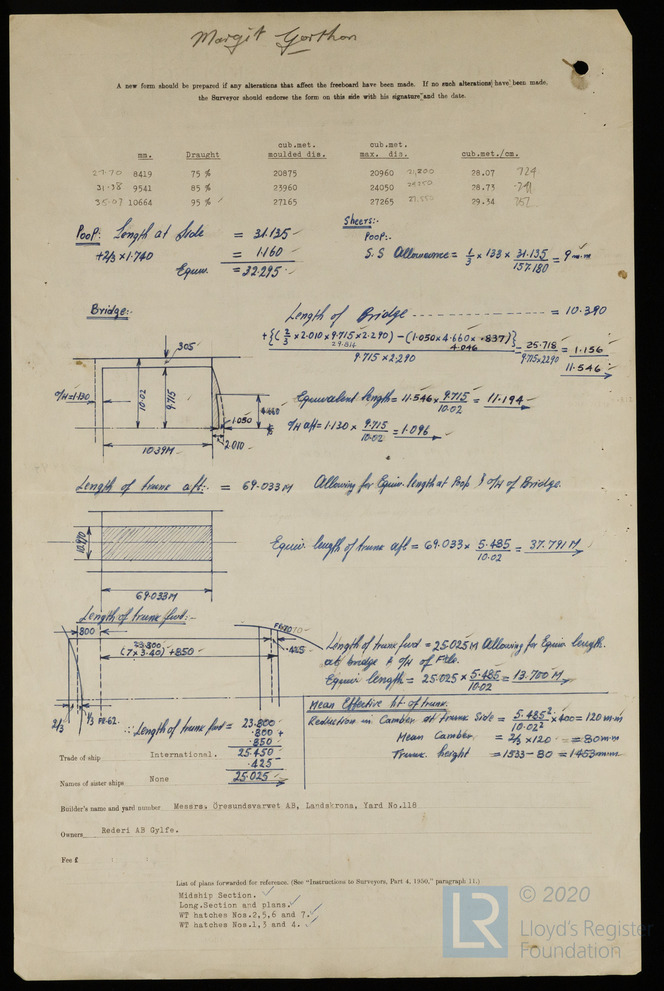 Margit Gorthon
A new form should be prepared if any alterations that affect the freeboard have been made. If no such alterations have been made,
the Surveyor should endorse the form on this side with his signature and the date.
mm. Draught cub.met. moulded dis. cub.met. max. dis. cub.met./cm.
27-70 8419 75 % 20875 20960 21,200 28.07 724
31-38 9541 85 % 23960 24050 28.73 741
35-07 10664 95 % 27165 27265 29.34 757
Poop: Length at Side = 31.135
+2/3 x 1.740 = 1.160
Equiv. = 32.295
Sheers:-
Poop:-
S.S Allowance = 1/3 x 133 x 31.135/157.180 = 9 m.m
Bridge:-
Length of Bridge = 10.390
+{(2/3 x 2.010 x 9.715 x 2.290) - (1.050 x 4.660 x .837)} / 9.715 x 2.290 = 25.718 / 9.715x2.290 = 1.156
29.814 4.096
11.546
305
O/H=1.130
10.02
9.715
4.660
1.050
2.010
10.39M
Equivalent length = 11.546 x 9.715/10.02 = 11.194
O/H aft = 1.130 x 9.715/10.02 = 1.096
Length of trunk aft:- = 69.033 M Allowing for Equiv. length at Poop & O/H of Bridge.
10.970
69.033M
Equiv. length of trunk aft = 69.033 x 5.485/10.02 = 37.791 M
Length of trunk fwd:-
800
23.800
(7 x 3.40) + 850
.425
2/3 1/3 FR.62.
Length of trunk fwd = 25.025 M Allowing for Equiv. length.
at bridge & O/H of F'cle.
Equiv. length = 25.025 x 5.485/10.02 = 13.700 M
∴ Length of trunk fwd = 23.800
.800 +
.850
25.450
.425
25.025
Mean Effective ht. of trunk.
Reduction in Camber at trunk Side = 5.485²/10.02² x 400 = 120 m.m
Mean Camber = 2/3 x 120 = 80 m.m
Trunk height = 1533 - 80 = 1453 m.m
Trade of ship International.
Names of sister ships None
Builder's name and yard number Messrs. Öresundsvarvet AB, Landskrona, Yard No.118
Owners Rederi AB Gylfe.
Fee £
List of plans forwarded for reference. (See "Instructions to Surveyors, Part 4, 1950," paragraph 11.)
Midship Section.
Long.Section and plans.
WT hatches Nos.2,5,6 and 7.
WT hatches Nos.1,3 and 4.
LR
© 2020
Lloyd's Register
Foundation